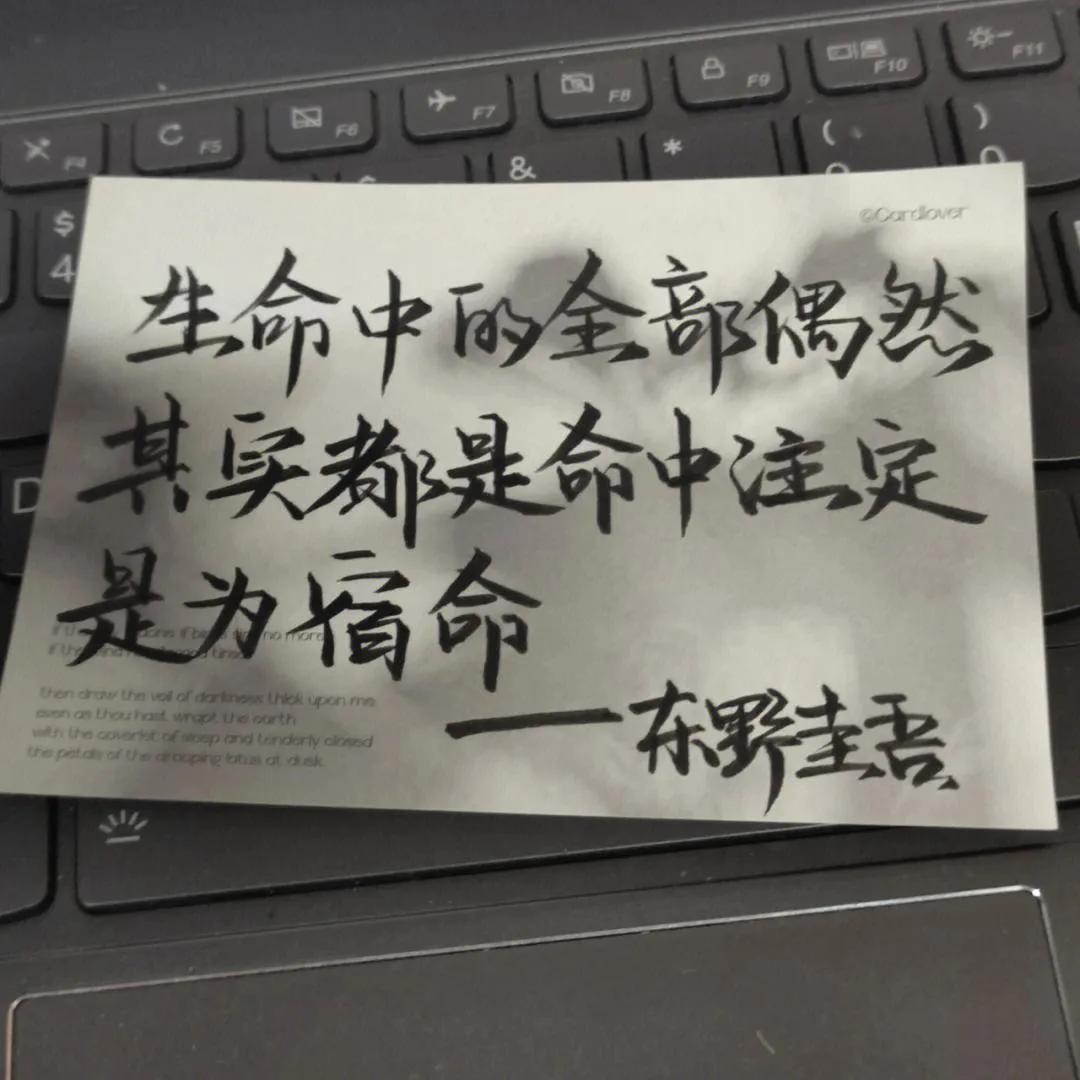 F4 F5 F6 F7 F8 F9 F10 F11
& * ( )
$
4
©Cardlover
生命中的全部偶然
其实都是命中注定
是为宿命
no more
then draw the veil of darkness thick upon me
even as thou hast wrapt the earth
with the coverlet of sleep and tenderly closed
the petals of the drooping lotus at dusk.
——东野圭吾
D